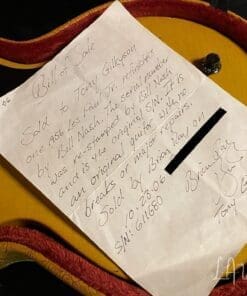 Bill of Sale
Sold to Tony Gilkyson
one 1956 Les Paul Jr. refinished
by Bill Nash. The serial number
was re-stamped by Bill Nash
and is the original S/N. It is
an original guitar with no
breaks or major repairs.
Sold by Brian Ray on
10-23-06
S/N: 611680
Brian Ray
Tony